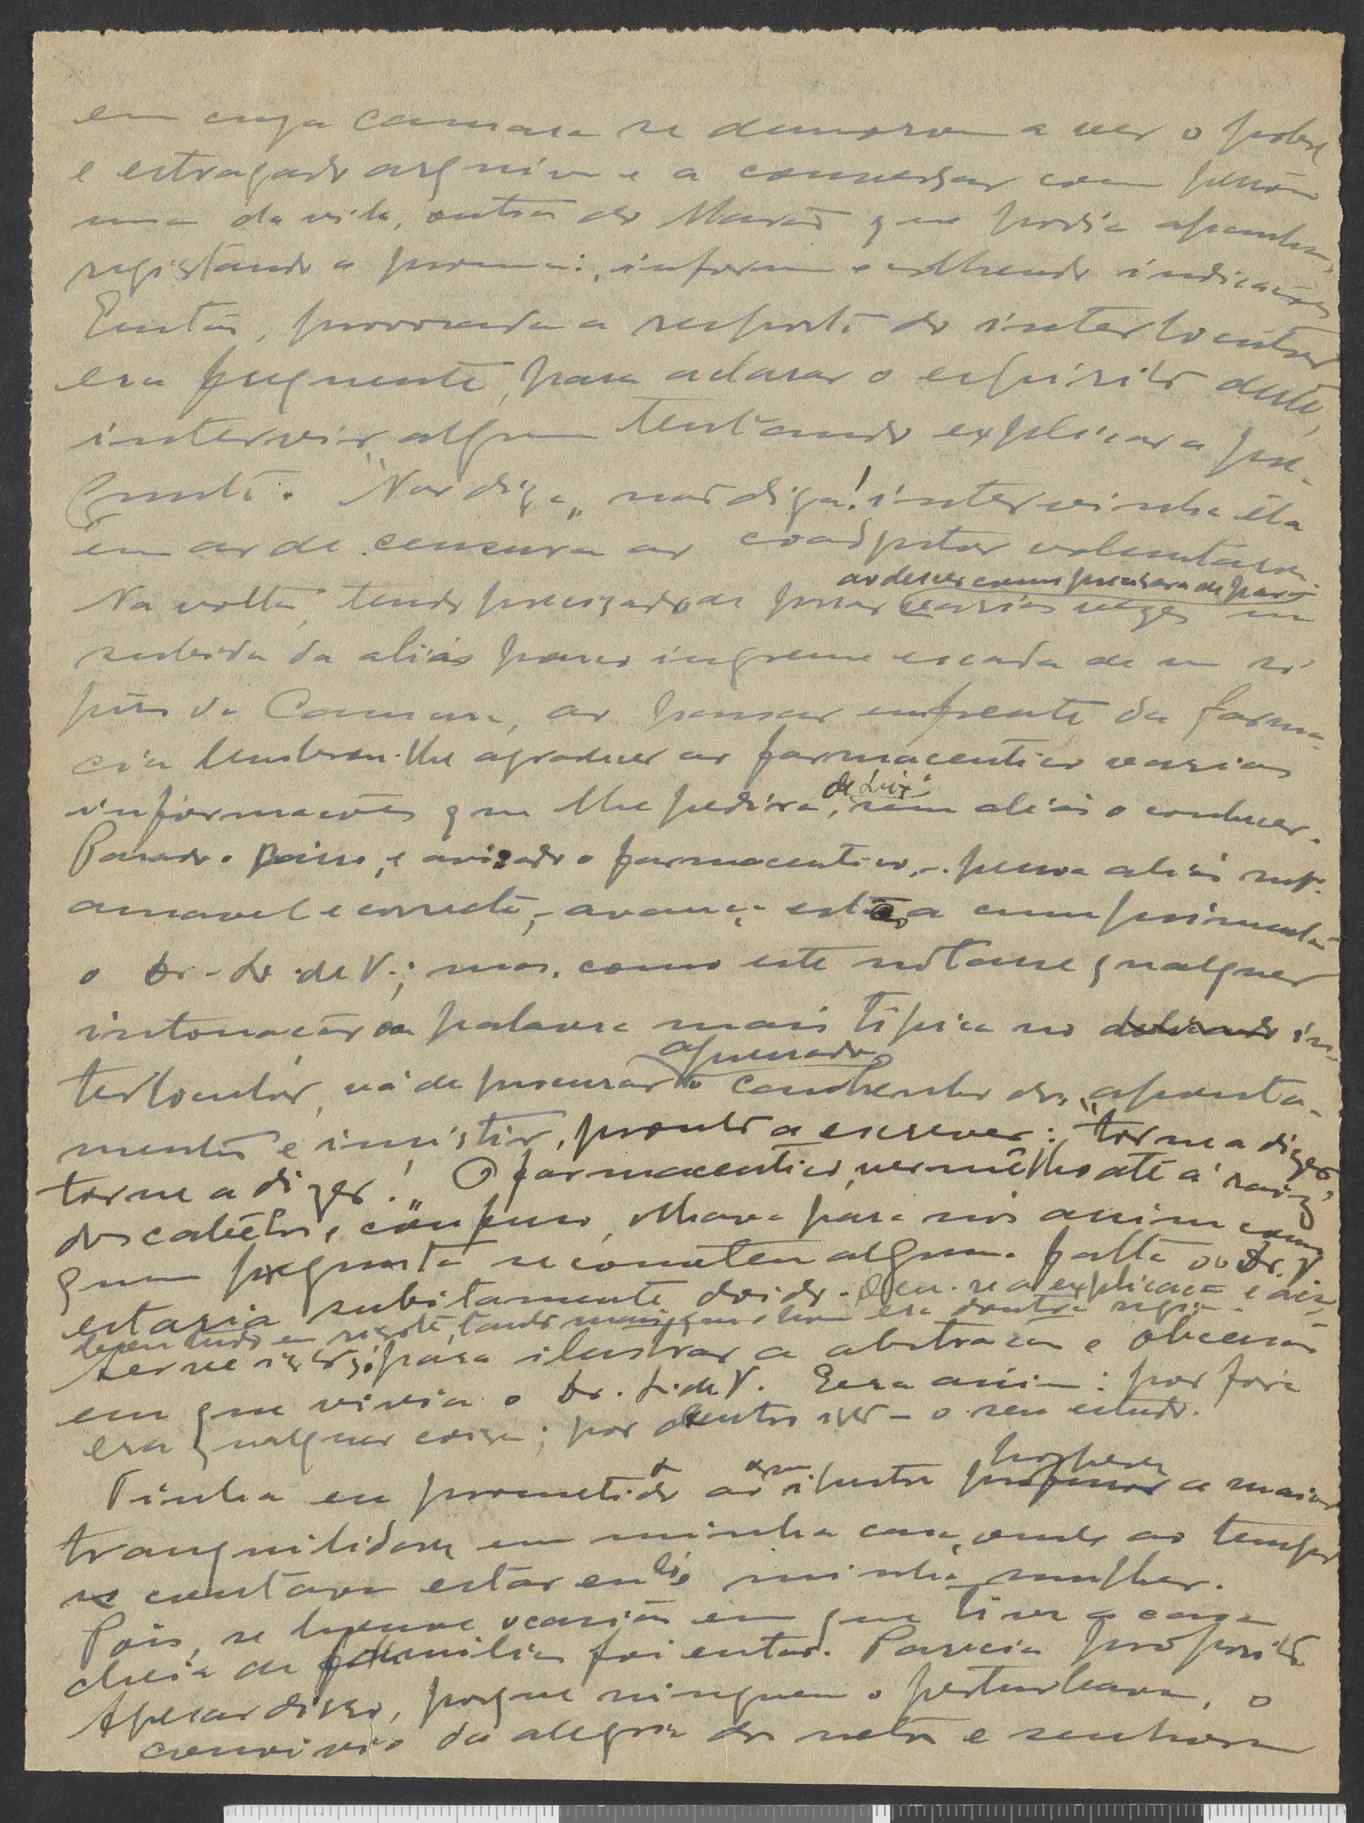 em cuja camara se demorou a ver o pobre
e estragado arquivo e a conversar com pessôas
uma da vila, outra do Marão que podia apanhar,
registando a pronuncia, informe e colhendo indicações
Então, provocada a resposta do interlocutor
era frequente, para aclarar o espirito deste,
intervir alguem tentando explicar a per-
gunta. "Não diga, não diga! intervinha êle
em ar de censura ao coadjutor voluntario.
ao descer como precisara de parar
Na volta, tendo precizado de parar varias vezes na
subida da aliás pouco ingreme escada de um só
piso da Camara, ao passar emfrente da farma-
cia lembrou-lhe agradecer ao farmaceutico varias
de Luiz
informações que lhe pedira, sem aliás o conhecer.
Parado o carro, e avisado o farmaceutico, - pessoa aliás mto.
amavel e correcta, - avança este a cumprimentar
o Dr. L. de V.; mas, como este notasse qualquer
intonação ou palavra mais tipica no in-
apressado
terlocutor, vá de procurar o canhenho dos aponta-
mentos e insistir, pronto a escrever: "torne a dizer,
torne a dizer!" O farmaceutico, vermêlho até á raiz
dos cabêlos, confuso, olhava para nós assim como
quem pregunta se cometeu alguma falta ou o Dr. V
estaria subitamente doido. Deu-se a explicação e
tanto mais que o bom era doutra região.
Serve isto para ilustrar a abstração e obcecação
em que vivia o Dr. L. de V. Era assim: por fora
era qualquer coisa; por dentro isto - o seu estudo.
hospede
Tinha eu prometido ao ilustre professor a maior
tranquilidade em minha casa, onde ao tempo
se contava estar só minha mulher.
Pois, se houve ocasião em que tive a casa
cheia de familia foi então. Parecia proposito.
Apesar disso, porque ninguem o perturbava, o
convivio da alegria dos netos e senhora